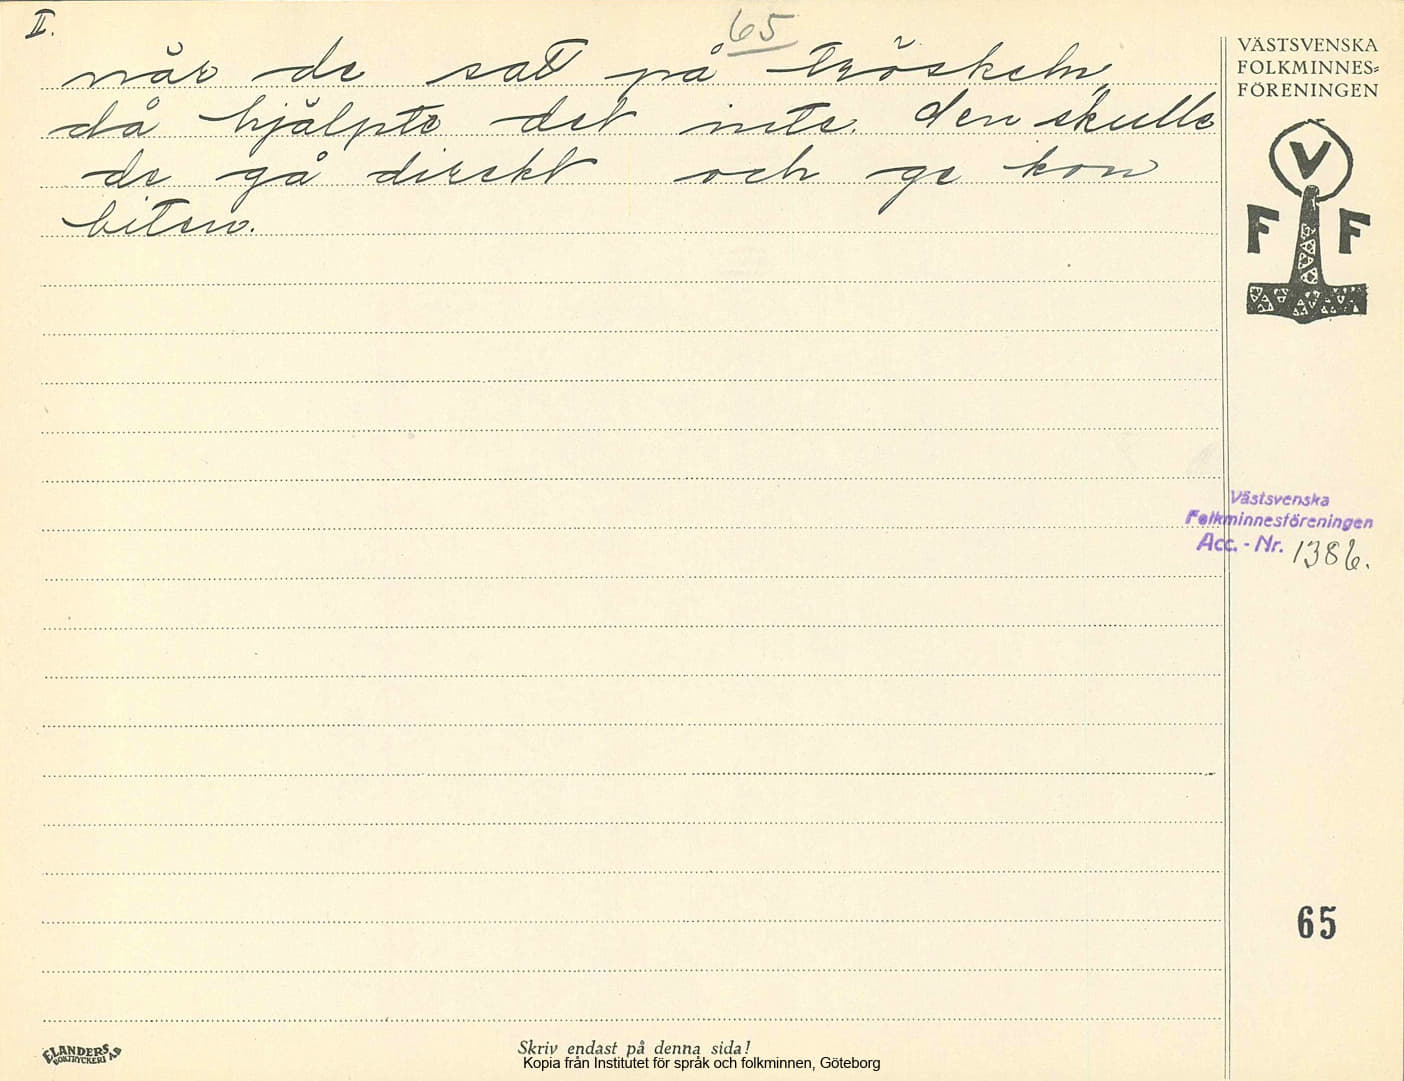 II.
65
när de sat på tröskeln,
då hjälpte det inte. den skulle
de gå direkt och ge kon
biten.
VÄSTSVENSKA
FOLKMINNES=
FÖRENINGEN
V
F F
Västsvenska
Folkminnesföreningen
Acc. - Nr. 1386.
65
ELANDERS
BOKTRYCKERI AB
Skriv endast på denna sida!
Kopia från Institutet för språk och folkminnen, Göteborg